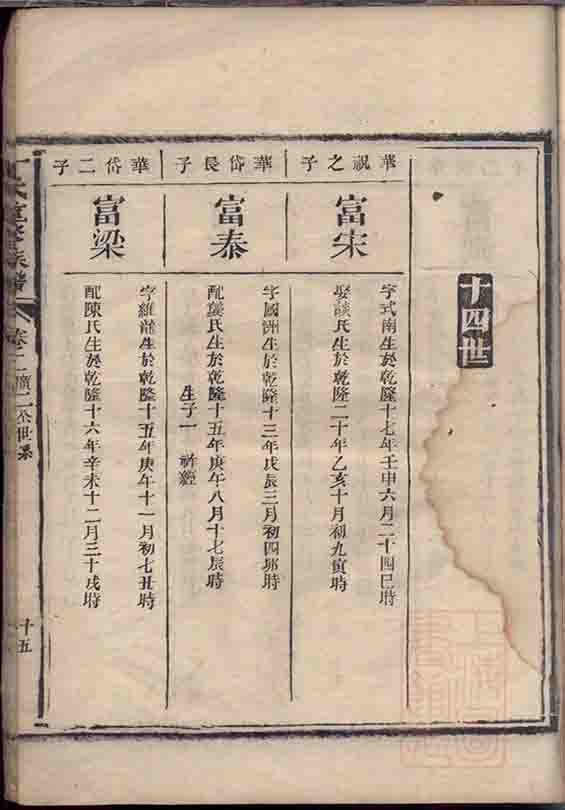 十四世
華祝之子
富宋
字式南生於乾隆十七年壬申六月二十四巳時
娶談氏生於乾隆二十年乙亥十月初九寅時
華岱長子
富泰
字國洲生於乾隆十三年戊辰三月初四夘時
配龔氏生於乾隆十五年庚午八月十七辰時
生子一
華岱二子
富梁
字維瀧生於乾隆十五年庚午十一月初七丑時
配陳氏生於乾隆十六年辛未十二月三十戌時
氏重修族譜
卷十二廣二公世系
十五